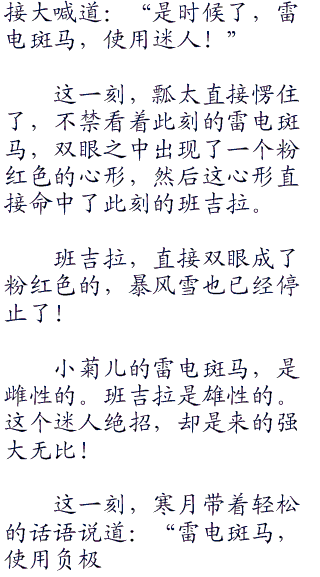 接大喊道：“是时候了，雷
电斑马，使用迷人！”
这一刻，瓢太直接愣住
了，不禁看着此刻的雷电斑
马，双眼之中出现了一个粉
红色的心形，然后这心形直
接命中了此刻的班吉拉。
班吉拉，直接双眼成了
粉红色的，暴风雪也已经停
止了！
小菊儿的雷电斑马，是
雌性的。班吉拉是雄性的。
这个迷人绝招，却是来的强
大无比！
这一刻，寒月带着轻松
的话语说道：“雷电斑马，
使用负极